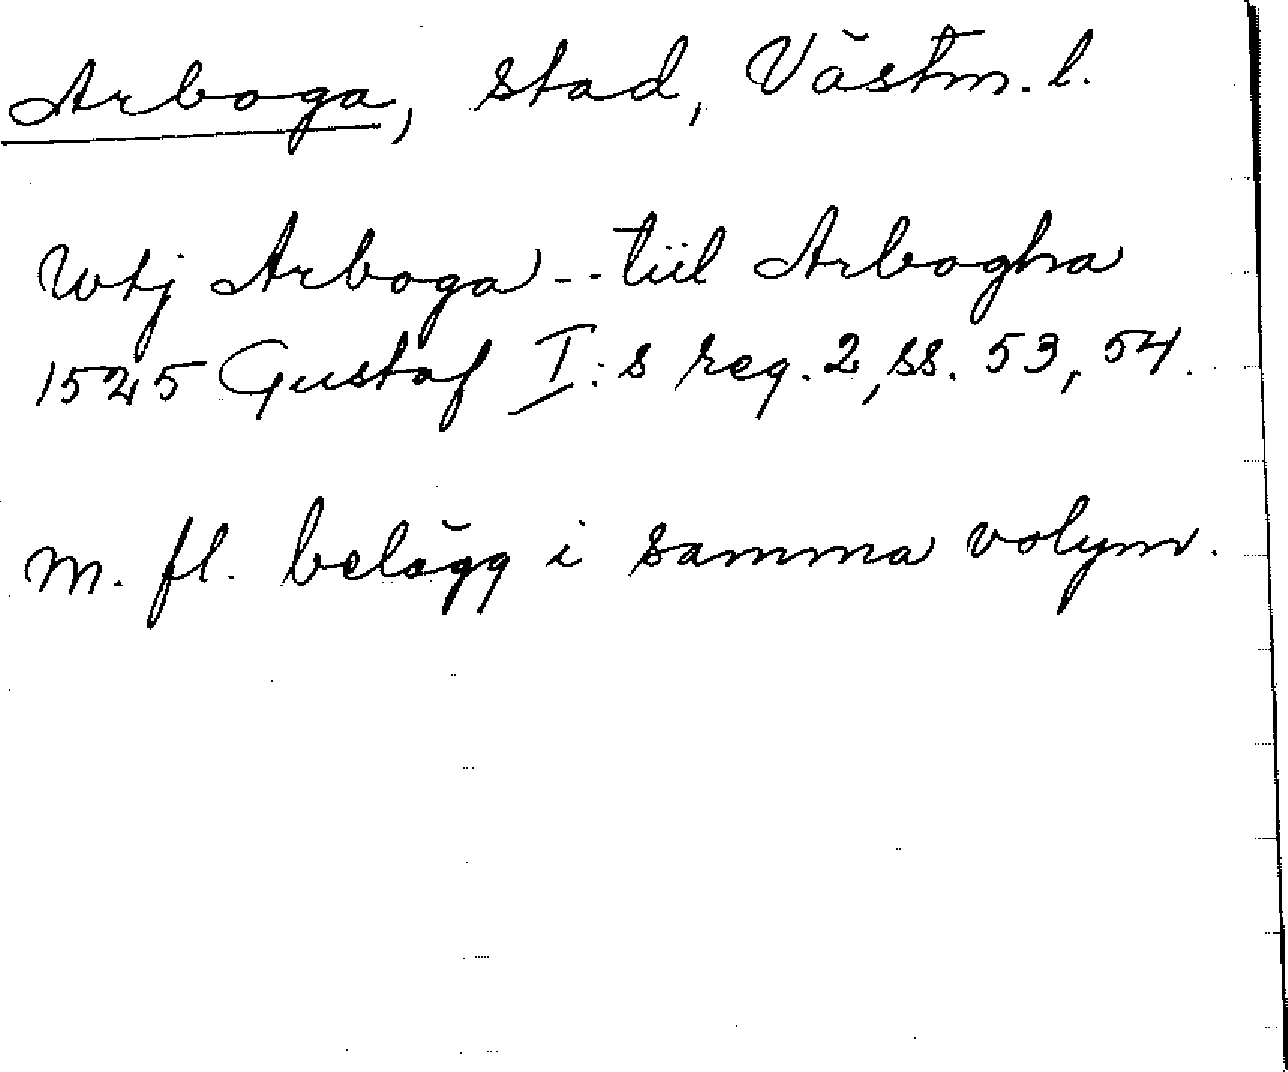 Arboga, stad, Västm. l.
Wtj Arboga -- tiil Arbogha
1525 Gustaf I:s reg. 2, ss. 53, 54.
m. fl. belägg i samma volym.